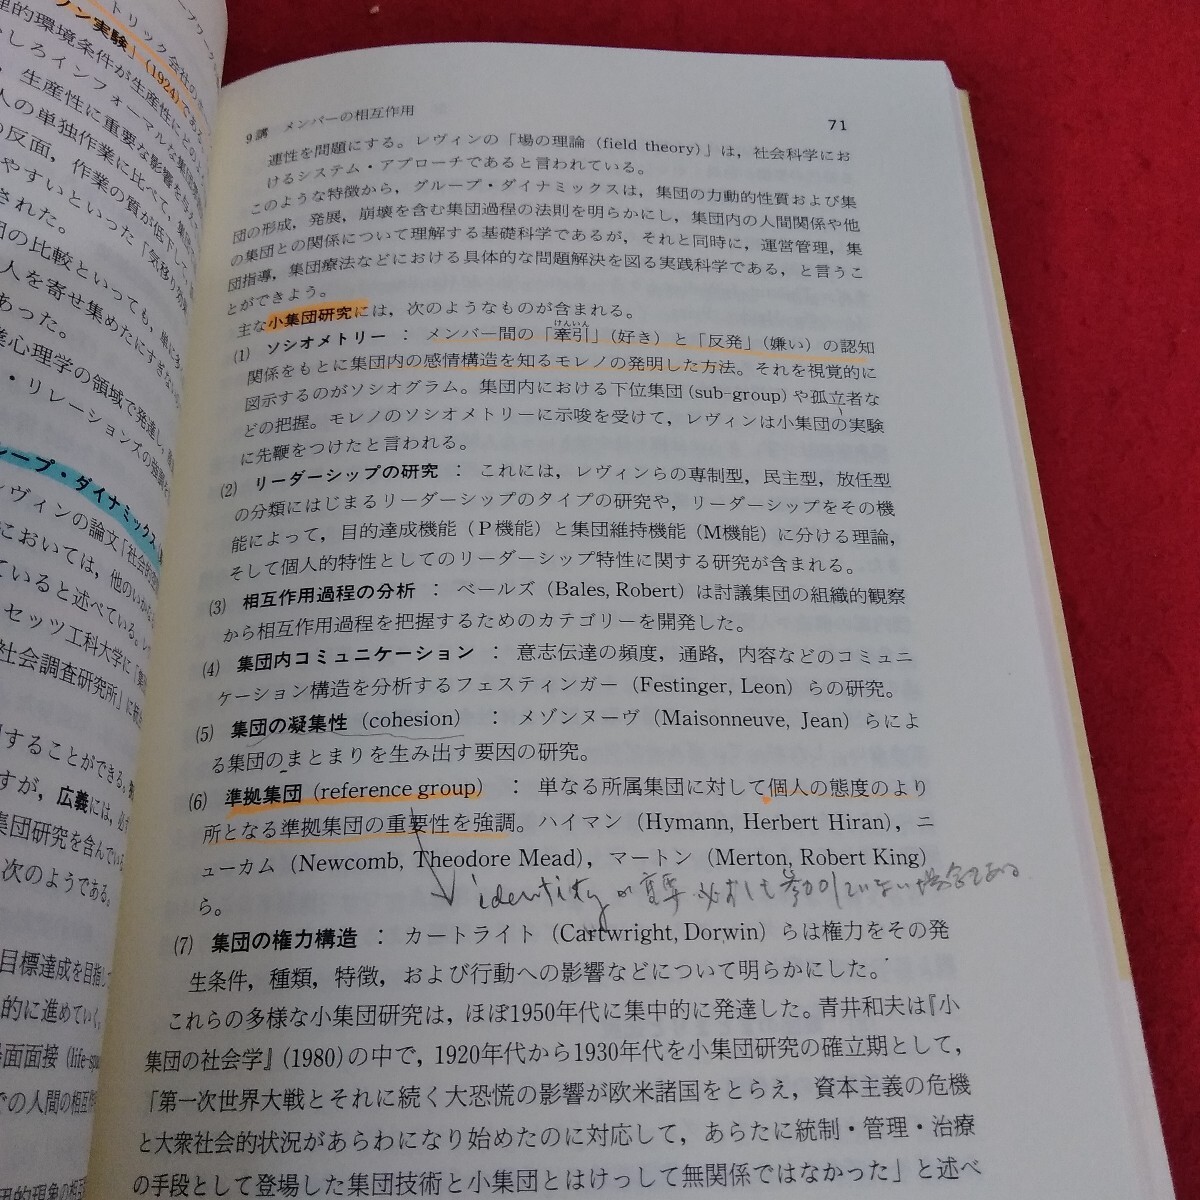 トリック会社の
理的環境条件が生産性にどの
しろインフォーマルな集団
生産性に重要な影響を与え
人の単独作業に比べて，集
の反面，作業の質が低下し
やすいといった「気移り効果
された。
団の比較といっても，単に多
人を寄せ集めたにすぎない
あった。
心理学の領域で発達し，
・リレーションズの
ループ・ダイナミックス
レヴィンの論文「社会的
においては，他のいかな
ていると述べている。レ
セッツ工科大学に「集
社会調査研究所」に
することができる。
すが，広義には，必ず
集団研究を含んでいる
次のようである。
目標達成を目指し
的に進めていく。
面面接
での人間の相互作
9講　メンバーの相互作用
71
連性を問題にする。レヴィンの「場の理論（field theory）」は，社会科学にお
けるシステム・アプローチであると言われている。
このような特徴から，グループ・ダイナミックスは，集団の力動的性質および集
団の形成，発展，崩壊を含む集団過程の法則を明らかにし，集団内の人間関係や他
の集団との関係について理解する基礎科学であるが，それと同時に，運営管理，集
団指導，集団療法などにおける具体的な問題解決を図る実践科学である，と言うこ
とができよう。
主な小集団研究には，次のようなものが含まれる。
(1)　ソシオメトリー　：　メンバー間の「牽引」（好き）と「反発」（嫌い）の認知
関係をもとに集団内の感情構造を知るモレノの発明した方法。それを視覚的に
図示するのがソシオグラム。集団内における下位集団（sub-group）や孤立者な
どの把握。モレノのソシオメトリーに示唆を受けて，レヴィンは小集団の実験
に先鞭をつけたと言われる。
(2)　リーダーシップの研究　：　これには，レヴィンらの専制型，民主型，放任型
の分類にはじまるリーダーシップのタイプの研究や，リーダーシップをその機
能によって，目的達成機能（P機能）と集団維持機能（M機能）に分ける理論，
そして個人的特性としてのリーダーシップ特性に関する研究が含まれる。
(3)　相互作用過程の分析　：　ベールズ（Bales, Robert）は討議集団の組織的観察
から相互作用過程を把握するためのカテゴリーを開発した。
(4)　集団内コミュニケーション　：　意志伝達の頻度，通路，内容などのコミュニ
ケーション構造を分析するフェスティンガー（Festinger, Leon）らの研究。
(5)　集団の凝集性（cohesion）　：　メゾンヌーヴ（Maisonneuve, Jean）らによ
る集団のまとまりを生み出す要因の研究。
(6)　準拠集団（reference group）　：　単なる所属集団に対して個人の態度のより
所となる準拠集団の重要性を強調。ハイマン（Hymann, Herbert Hiran），ニ
ューカム（Newcomb, Theodore Mead），マートン（Merton, Robert King）
ら。
identityが重要 必ずしも参加していない場合もある
(7)　集団の権力構造　：　カートライト（Cartwright, Dorwin）らは権力をその発
生条件，種類，特徴，および行動への影響などについて明らかにした。
これらの多様な小集団研究は，ほぼ1950年代に集中的に発達した。青井和夫は『小
集団の社会学』（1980）の中で，1920年代から1930年代を小集団研究の確立期として，
「第一次世界大戦とそれに続く大恐慌の影響が欧米諸国をとらえ，資本主義の危機
と大衆社会的状況があらわになり始めたのに対応して，あらたに統制・管理・治療
の手段として登場した集団技術と小集団とはけっして無関係ではなかった」と述べ